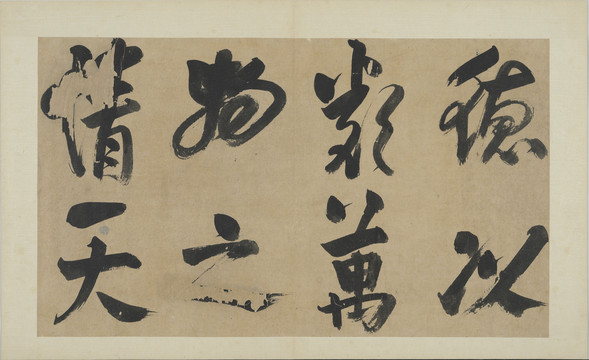 德以
類萬
物之
情天